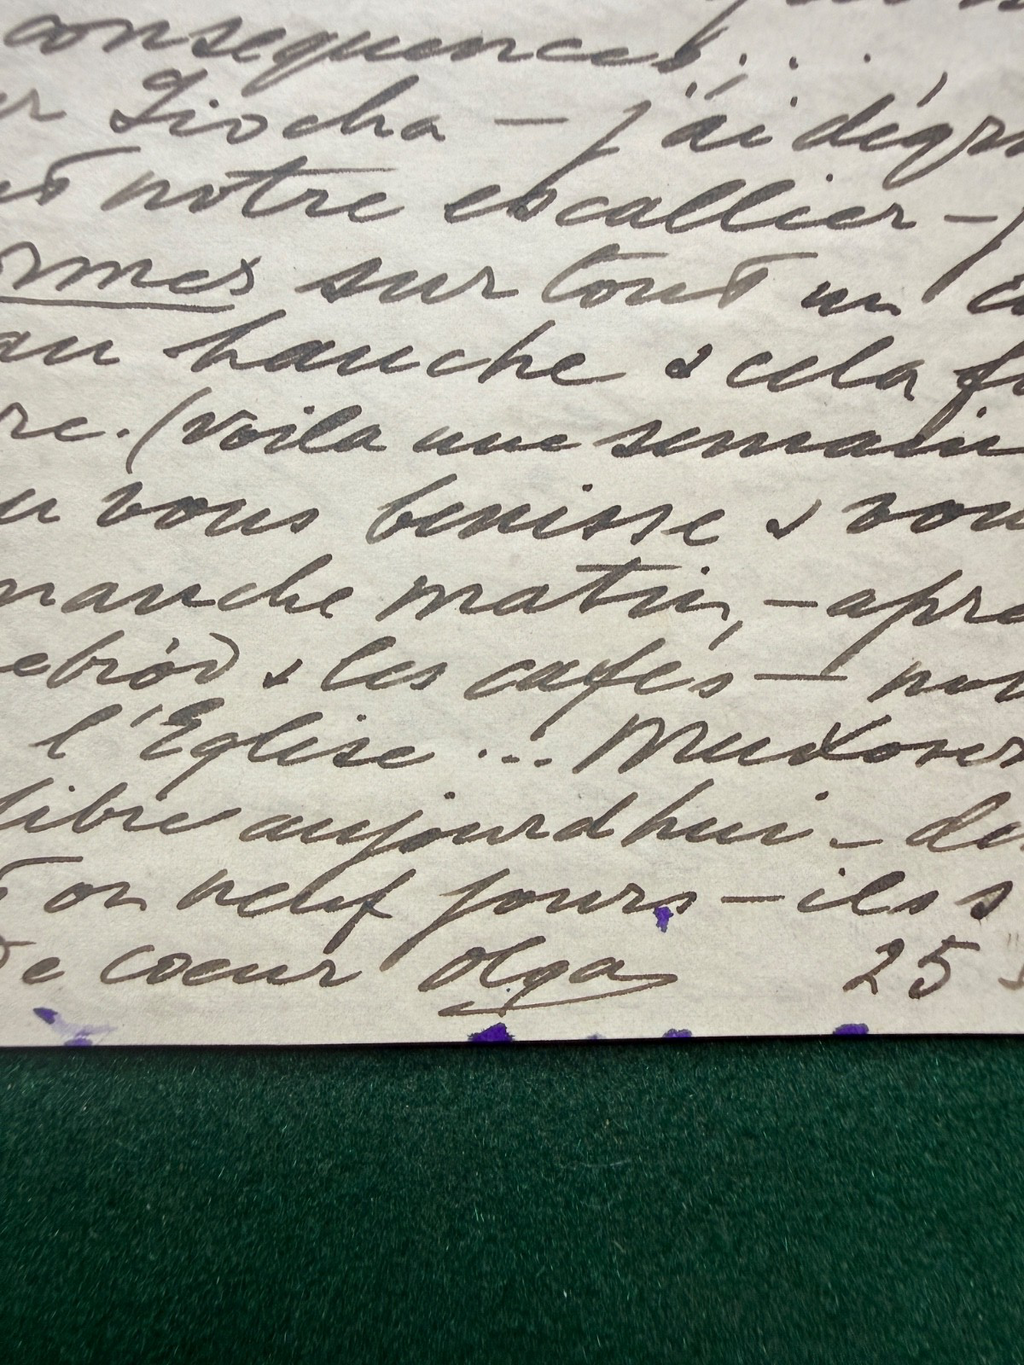 consequences...
Liocha — j'ai dégr
notre escallier —
ormes sur tout un
au hauche & cela
re. (voila une semain
vous benisse & vou
manche matin, — apre
ebröd & les cafés —
l'Eglise ...
libre aujourdhui -
on neuf jours — ils s
De coeur Olga 25